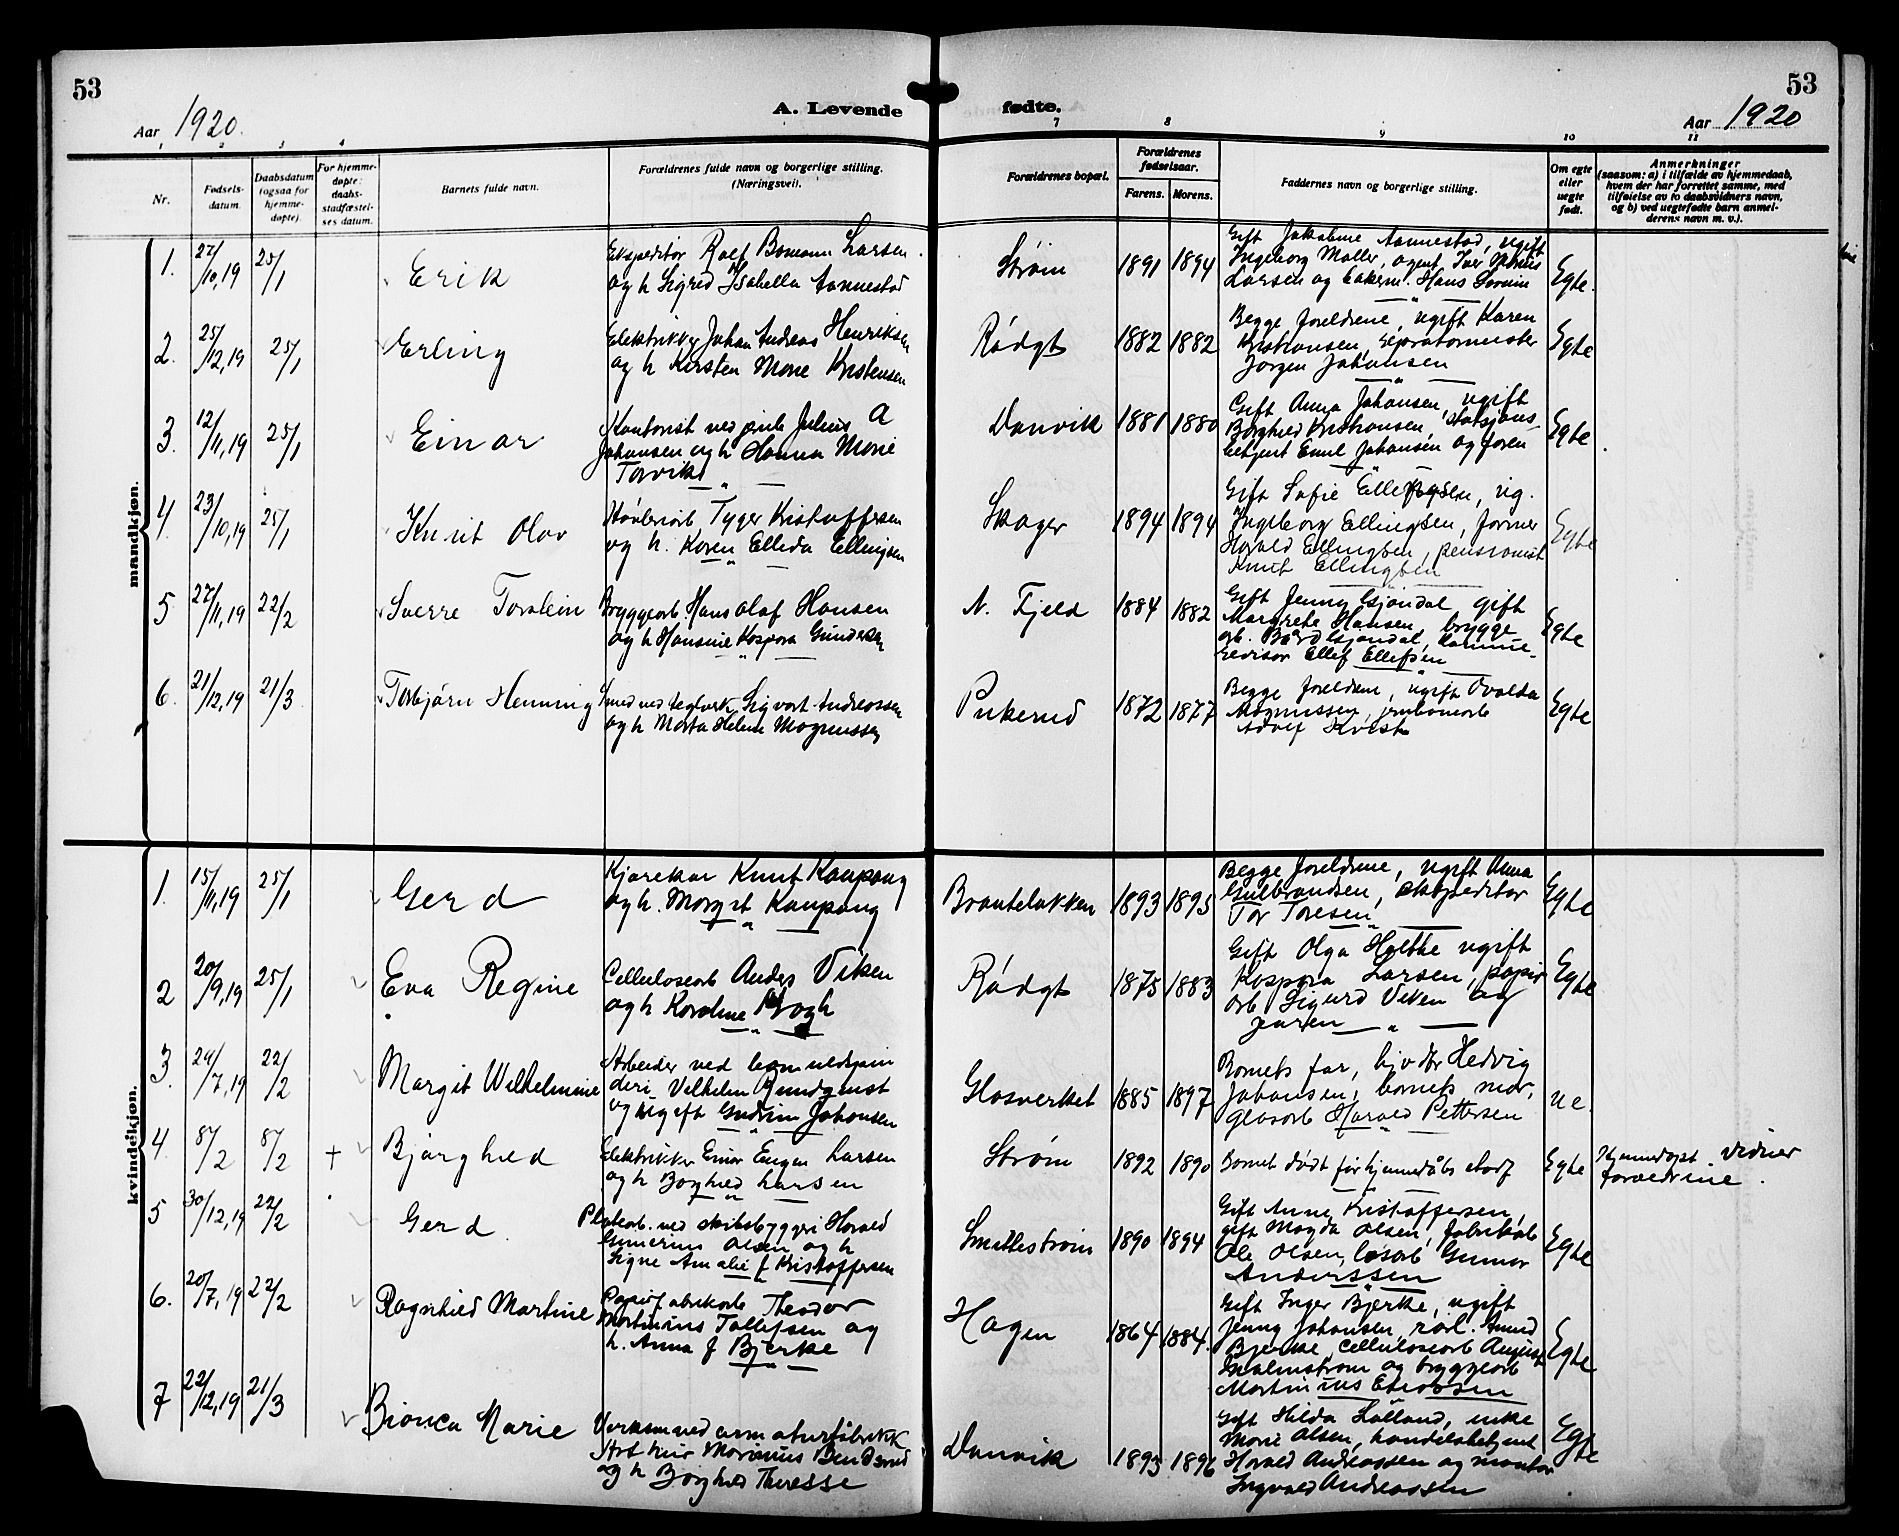 53
53
Aar 1920.
A. Levende
fødte.
Aar 1920
1 2 3 4
7 8 9 10 11
Nr.
Fødselsdatum.
Daabsdatum (ogsaa for hjemmedøpte).
For hjemmedøpte: daabsstadfæstelses datum.
Barnets fulde navn.
Forældrenes fulde navn og borgerlige stilling. (Næringsvei).
Forældrenes bopæl.
Forældrenes fødselsaar.
Farens. Morens.
Faddernes navn og borgerlige stilling.
Om egte eller uegte født.
Anmerkninger
(saasom: a) i tilfælde av hjemmedaab,
hvem der har forrettet samme, med
tilføielse av to daabsvidners navn,
og b) ved uegtefødte barn anmelderens navn m. v.).
mandkjøn.
1. 27/10,19 25/1 Erik
Ekspeditør Rolf Bomann Larsen
og h Sigred Isabella Aannestad
Strøm 1891 1894
Gift Jakobine Aannestad, ugift
Ingeborg Møller, agent Iver
Larsen og bakerm. Hans
Egte.
2. 25/12,19 25/1 Erling
Elektrikker Johan Andreas Henriksen
og h Kirsten Marie Kristensen
Rødgt 1882 1882
Begge foreldrene, ugift Karen
Kristiansen,
Jørgen Johansen
Egte
3. 12/11,19 25/1 Einar
Kontorist ved Julius A
Johansen og h Hanna Marie
Torvik
Danvik 1881 1880
Gift Anna Johansen, ugift
Borghild Kristiansen, statsjons-
betjent Emil Johansen og faren
Egte
4. 23/10,19 25/1 Knut Olav
Tyger Kristoffersen
og h. Karen Ellida Ellingsen
Skoger 1894 1894
Gift Sofie Ellefsen, ug.
Ingeborg Ellingsen, former
Harald Ellingsen, pensionist
Knut Ellingsen
Egte
5 27/11,19 22/2 Sverre Torstein
Bryggearb. Hans Olaf Hansen
og h Hansine Kaspara Gundersen
N. Fjeld 1884 1882
Gift Jenny gift
Margrete Hansen, brygge
arb. Bård
revisor Ellef Ellefsen
Egte
6. 21/12,19 21/3 Torbjørn Henning
Smed ved teglverk Sigvart Andreassen
og h Marta Helene Magnussen
Pukerud 1872 1877
Begge foreldrene, ugift Ovalda
Magnussen, jernbanearb
Adolf Kvist
Egte
kvindekjøn.
1. 15/11,19 25/1 Gerd
Kjørekar Knut Kaupang
og h. Margit Kaupang
Brauteløkken 1893 1895
Begge foreldrene, ugift Anna
Gulbrandsen, ekspeditør
Tor Toresen
Egte
2 20/9,19 25/1 Eva Regine
Cellulosearb Anders Viken
og h Karoline
Rødgt 1875 1883
Gift Olga Holtke ugift
Kaspara Larsen, papir
arb Sigurd Viken og
faren
Egte
3. 24/7,19 22/2 Margit Wilhelmine
Arbeider ved bomuldspin
deri Vilhelm Rundquist
og ugift Gudrun Johansen
Glasverket 1885 1897
Barnets far, Hedvig
Johansen, barnets mor,
glasarb Harald Pettersen
ue.
4. 8/2 8/2 + Bjørghild
Elektrikker Einar Eugen Larsen
og h Borghild Larsen
Strøm 1892 1890
Barnet dødt før hjemmedåbs stadf
Egte
Hjemmedøpt vidner
foreldrene.
5 30/12,19 22/2 Gerd
Platearb. ved skibsbyggeri Harald
Gunerius Olsen og h
Signe Amalie f Kristoffersen
Smittestrøm 1890 1894
Gift Anne Kristoffersen,
gift Magda Olsen, fabrikarb
Ole Olsen, Gunnar
Anderssen
Egte
6. 20/7,19 22/2 Ragnhild Martine
Papirfabrikarb Theodor
Martinius Tollefsen og
h. Anna f Bjerke
Hagen 1864 1884.
Gift Inger Bjerke, ugift
Jenny Johansen, rørl. Amund
Bjerke, cellulosearb August
Malmstrøm og bryggearb
Martinius
Egte
7 22/12,19 21/3 Bianca Marie
Verksm ved armaturfabrikk
Arthur Marinius
og h Borghild Therese
Danvik 1895 1896
Gift Hilda Lølland, enke
Marie Olsen, handelsbetjent
Harald Andreassen og montør
Ingvald Andreassen
Egte